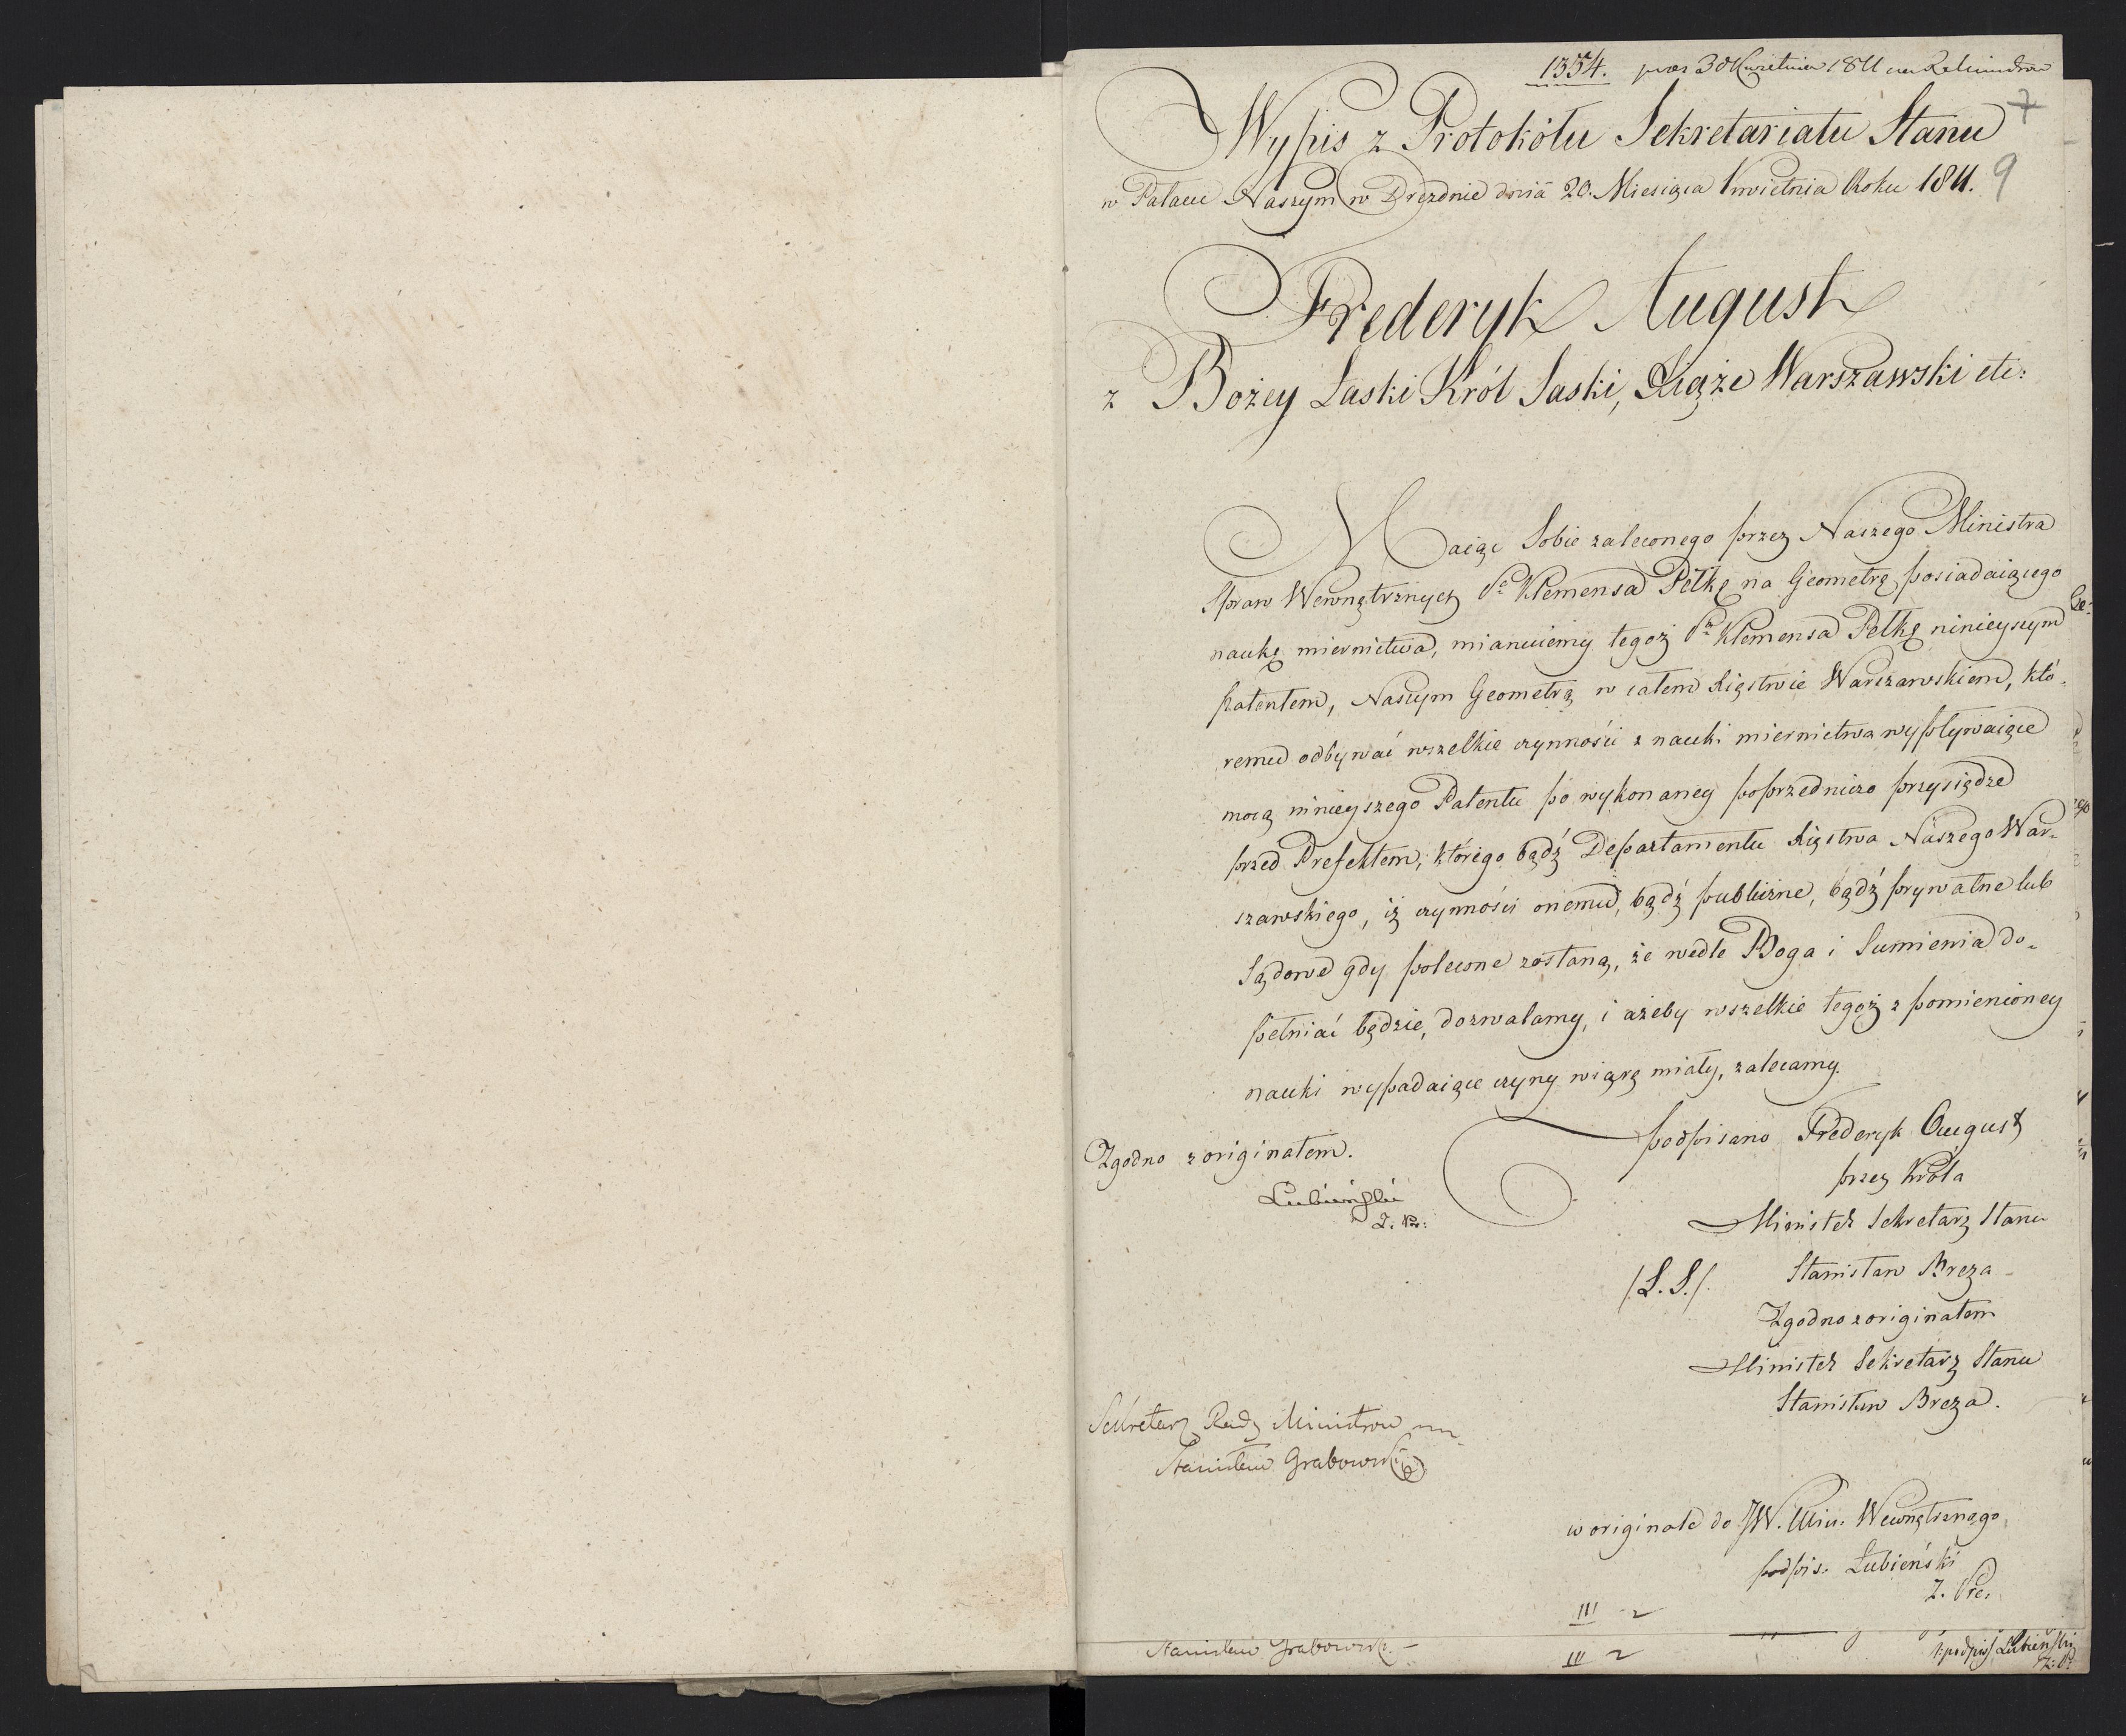 1354. prez 30 Kwietnia 1811
7
Wypis z Protokółu Sekretariatu Stanu
w Pałacu Naszym w Dreznie dnia 20. Miesiąca Kwietnia Roku 1811.
9
Frederyk August
z Bożey Łaski Król Saski, Xiąże Warszawski etc:
Maiąc Sobie zaleconego przez Naszego Ministra
Spraw Wewnętrznych Pa Klemensa Pełkę na Geometrę, posiadaiącego
naukę miernictwa, mianuiemy tegoż Pa Klemensa Pełkę ninieyszym
Patentem, Naszym Geometrą w całem Xięstwie Warszawskiem, któ-
remu odbywać wszelkie czynności z nauki miernictwa wypływaiące
mocą ninieyszego Patentu po wykonaney poprzedniczo przysiędze
przed Prefektem, którego bądź Departamentu Xięstwa Naszego War-
szawskiego, iż czynności onemu, bądź publiczne, bądź prywatne lub
Sądowe gdy polecone zostaną, że wedle Boga i Sumienia do-
pełniać będzie, dozwalamy, i ażeby wszelkie tegoż z pomienioney
nauki wypadaiące czyny wiarę miały, zalecamy.
podpisano Frederyk August
Zgodno z originałem.
przez Króla
Lubieński
Z. Pr:
Minister Sekretarz Stanu
/L.S./. Stanisław Breza
Zgodno z originałem
Minister Sekretarz Stanu
Stanisław Breza.
Sekretarz Rady Ministrow
Stanisław Grabowski
w originale do JW. Min. Wewnętrznego
podpis. Łubieński
Z. Pre.
III 2
Stanisław Grabowski
III 2
/:podpis/ Łubieński
Z: P: